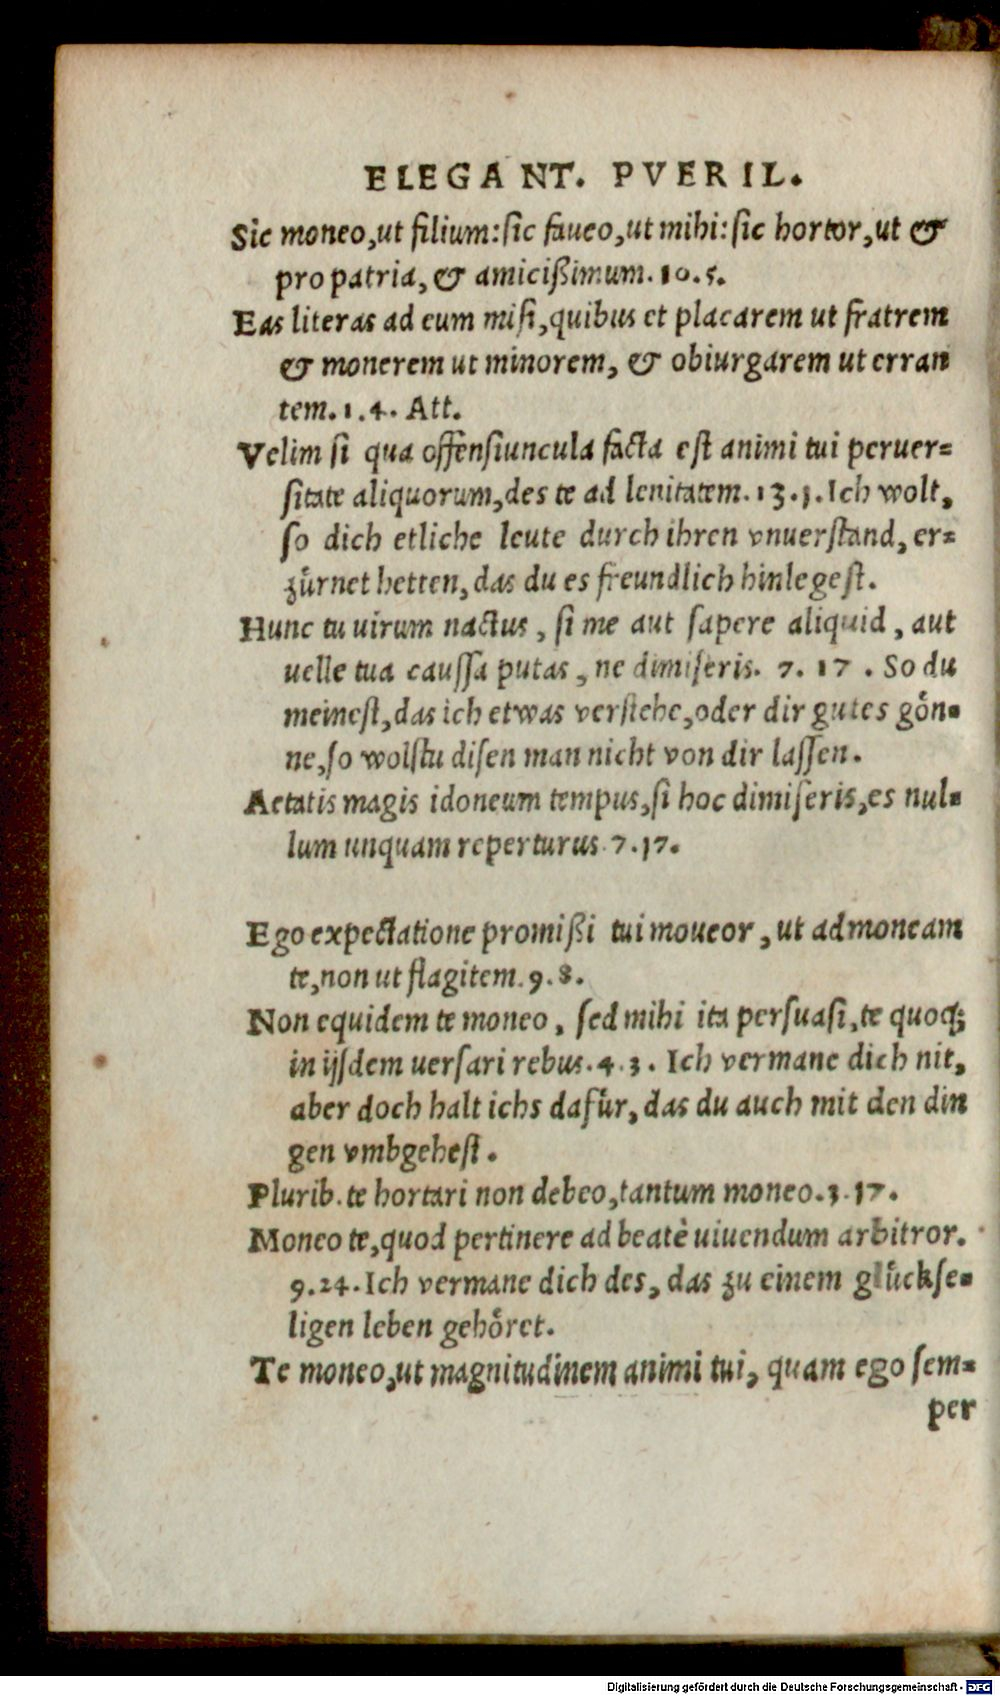 ELEGANT. PVERIL.
Sic moneo,ut filium:sic faueo,ut mihi:sic hortor,ut &
pro patria, & amicißimum. 10.5.
Eas literas ad eum misi,quibus et placarem ut fratrem
& monerem ut minorem, & obiurgarem ut erran
tem. 1.4. Att.
Velim si qua offensiuncula facta est animi tui peruer=
sitate aliquorum,des te ad lenitatem. 13.1. Ich wolt,
so dich etliche leute durch ihren vnuerstand, er=
zůrnet hetten, das du es freundlich hinlegest.
Hunc tu uirum nactus, si me aut sapere aliquid, aut
uelle tua caussa putas, ne dimiseris. 7. 17. So du
meinest,das ich etwas verstehe,oder dir gutes gön=
ne,so wolstu disen man nicht von dir lassen.
Aetatis magis idoneum tempus,si hoc dimiseris,es nul=
lum unquam reperturus. 7.17.
Ego expectatione promißi tui moueor, ut admoneam
te,non ut flagitem. 9.8.
Non equidem te moneo, sed mihi ita persuasi,te quoq;
in ijsdem uersari rebus. 4.3. Ich vermane dich nit,
aber doch halt ichs dafür, das du auch mit den din
gen vmbgehest.
Plurib. te hortari non debeo,tantum moneo. 3.17.
Moneo te,quod pertinere ad beatè uiuendum arbitror.
9.24. Ich vermane dich des, das zu einem glückse=
ligen leben gehöret.
Te moneo,ut magnitudinem animi tui, quam ego sem=
per
Digitalisierung gefördert durch die Deutsche Forschungsgemeinschaft - DFG